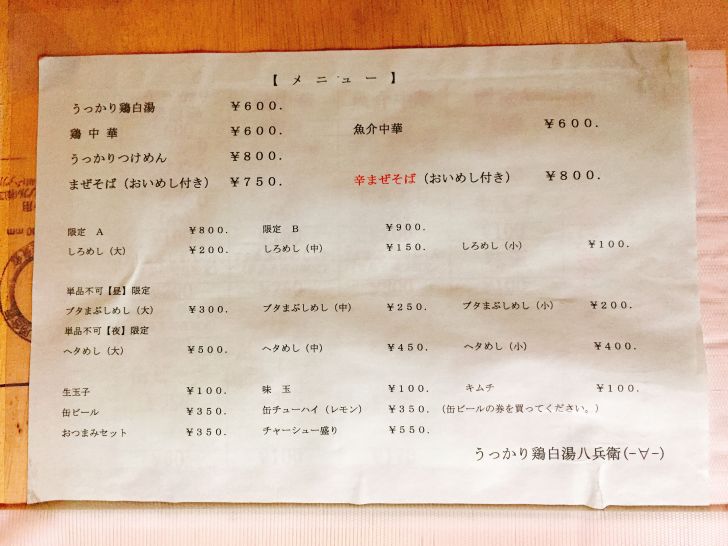 【 メ ニ ュ ー 】
うっかり鶏白湯 ￥６００．
鶏 中 華 ￥６００． 魚介中華 ￥６００．
うっかりつけめん ￥８００．
まぜそば（おいめし付き） ￥７５０． 辛まぜそば（おいめし付き） ￥８００．
限定 Ａ ￥８００． 限定 Ｂ ￥９００．
しろめし（大） ￥２００． しろめし（中） ￥１５０． しろめし（小） ￥１００．
単品不可【昼】限定
ブタまぶしめし（大） ￥３００． ブタまぶしめし（中） ￥２５０． ブタまぶしめし（小） ￥２００．
単品不可【夜】限定
ヘタめし（大） ￥５００． ヘタめし（中） ￥４５０． ヘタめし（小） ￥４００．
生玉子 ￥１００． 味 玉 ￥１００． キムチ ￥１００．
缶ビール ￥３５０． 缶チューハイ（レモン） ￥３５０．（缶ビールの券を買ってください。）
おつまみセット ￥３５０． チャーシュー盛り ￥５５０．
うっかり鶏白湯八兵衛(−∀−)